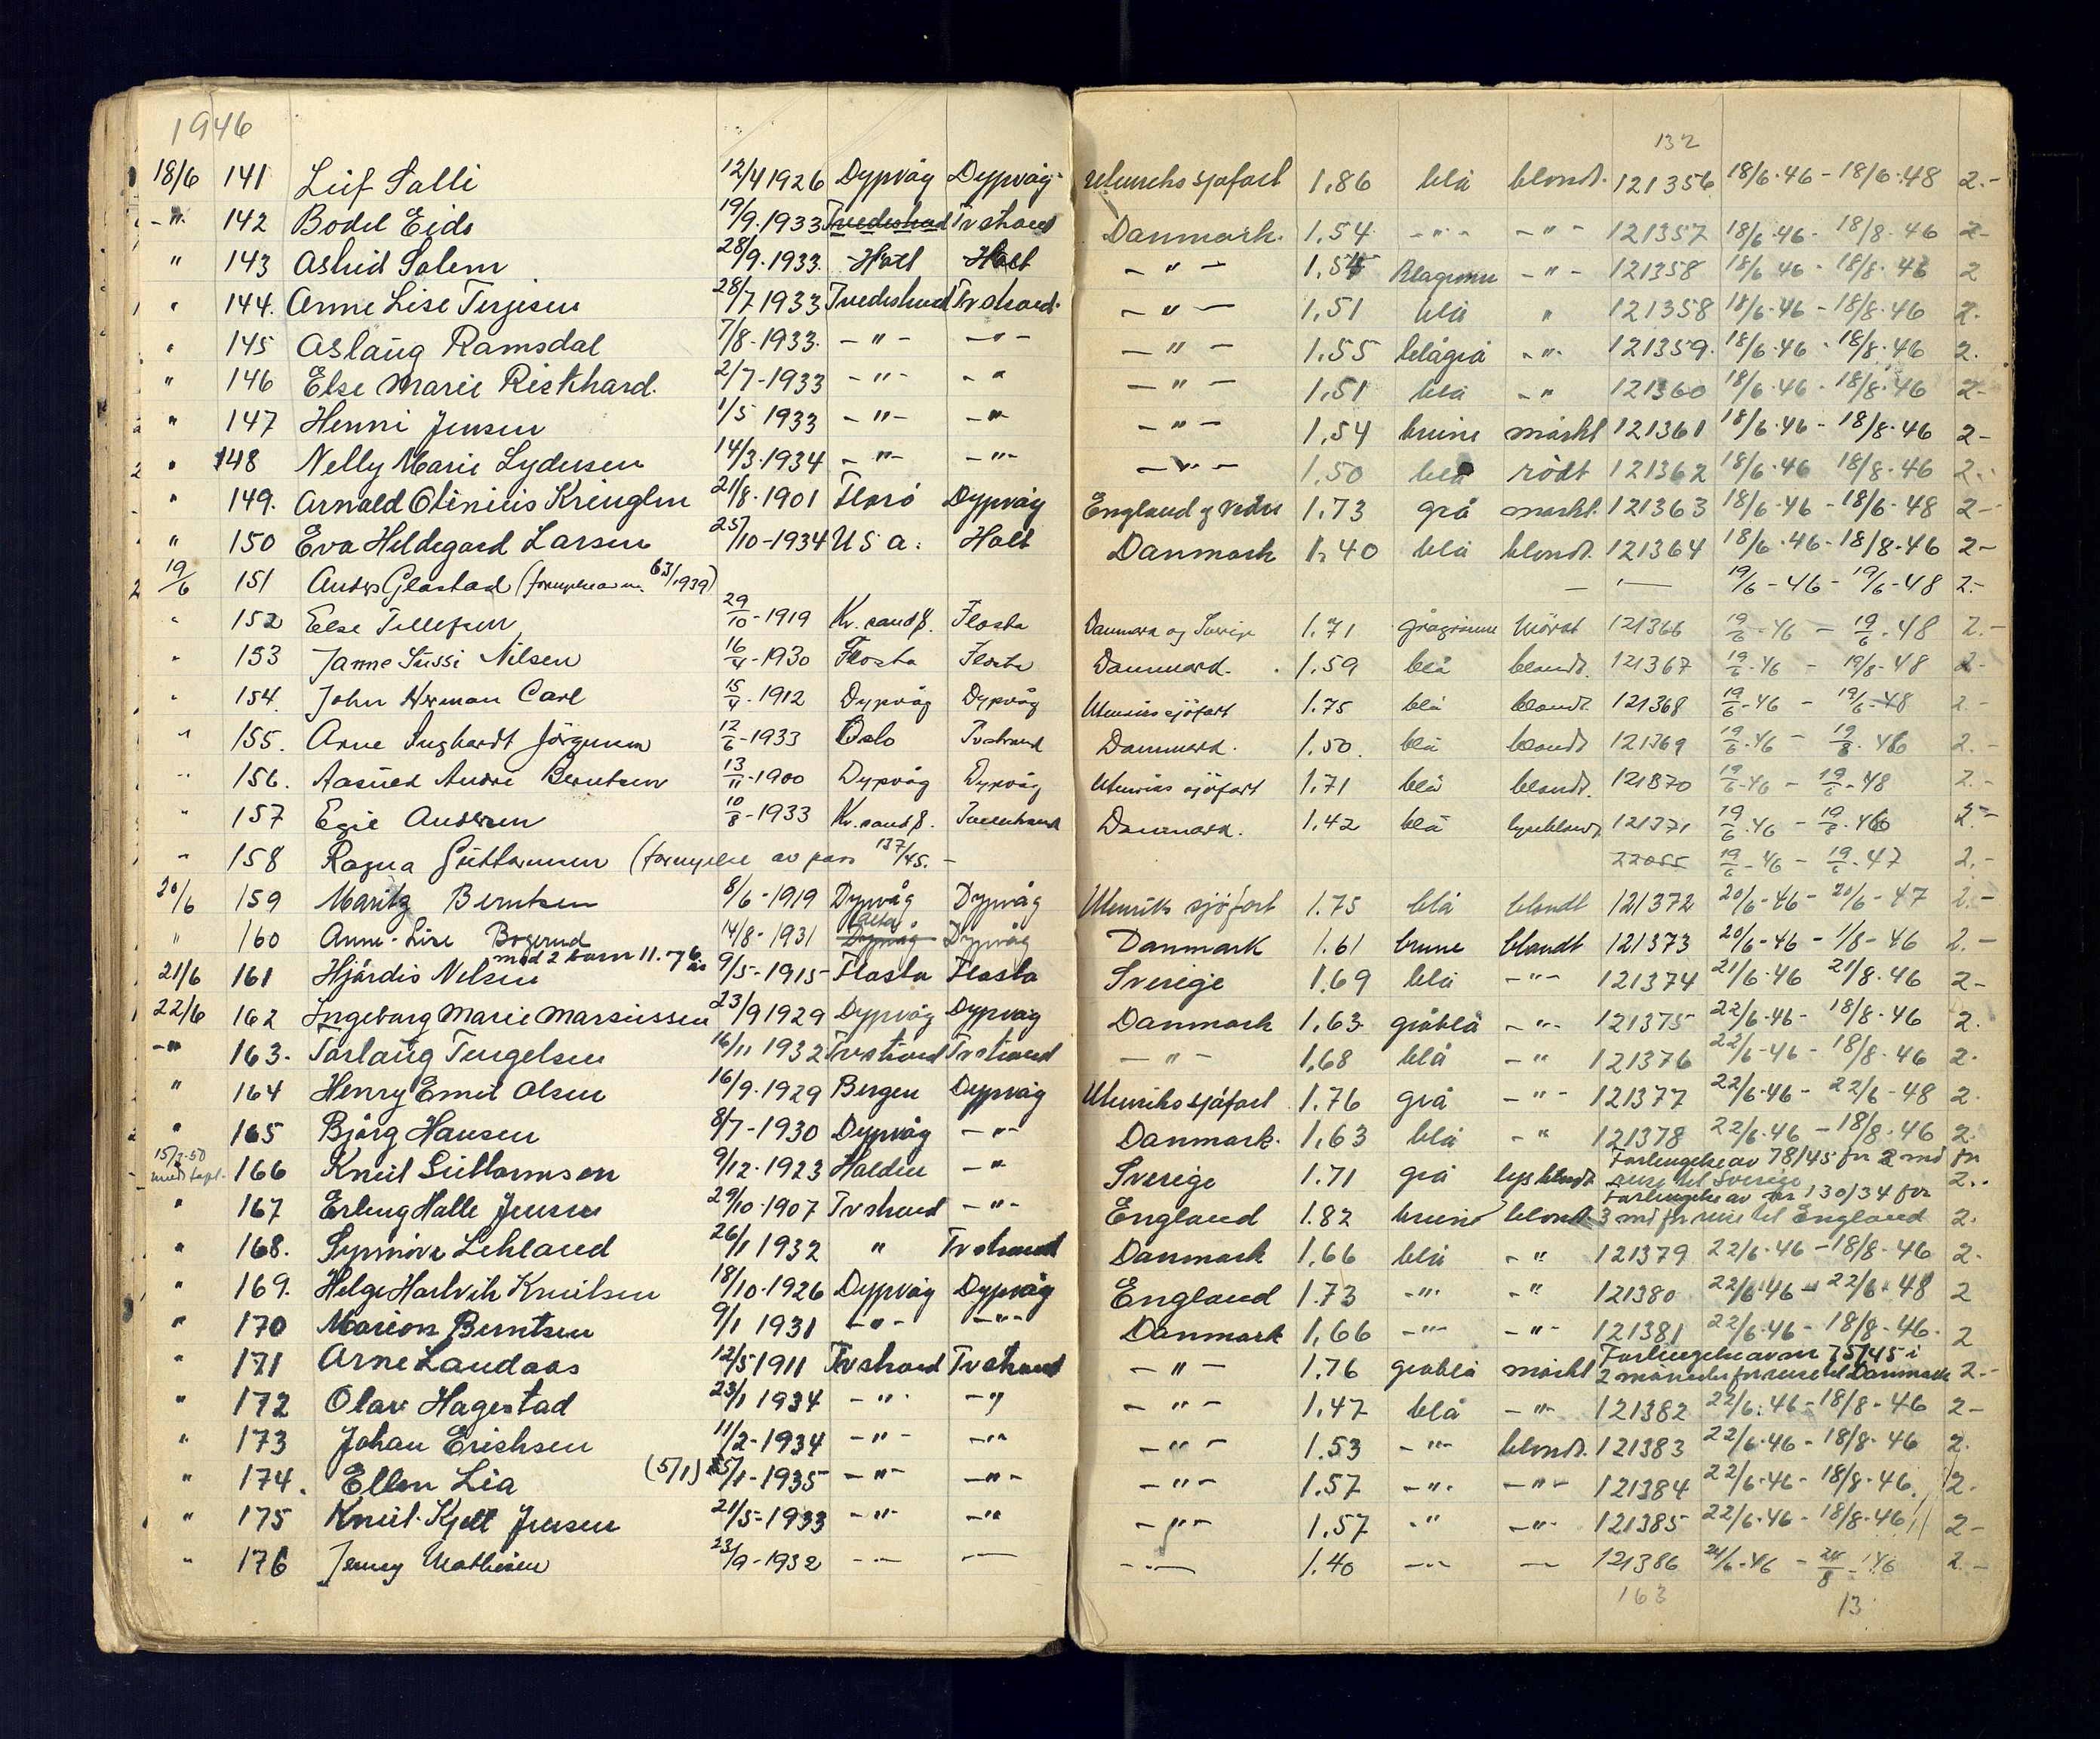 1946
132
18/6 141 Leif Salli 12/4 1926 Dypvåg Dypvåg Utenriks sjøfart 1.86 blå blondt. 121356 18/6-46 - 18/6-48 2.-
-"- 142 Bodil Eide 19/9-1933 Tvedestrand Tvstrand Danmark. 1.54 -"- -"- 121357 18/6-46 - 18/8-46 2-
" 143 Astrid Solem 28/9-1933. Holt Holt -"- 1.54 Blågrønne -"- 121358 18/6-46 - 18/8-46 2
" 144. Anne Lise Terjesen 28/7 1933 Tvedestrand Tvstrand. -"- 1.51 blå " 121358 18/6-46 - 18/8-46 2.
" 145 Aslaug Ramsdal 7/8-1933. -"- -"- -"- 1.55 blågrå -"- 121359. 18/6-46 - 18/8-46 2.
" 146 Else Marie Rickhard. 2/7-1933 -"- -"- -"- 1.51 blå -"- 121360 18/6-46 - 18/8-46 2-
" 147 Henni Jensen 1/5 1933 -"- -"- -"- 1.54 brune mørkt 121361 18/6-46 - 18/8-46 2-
" 148 Nelly Marie Lydersen 14/3-1934 -"- -"- -"- 1.50 blå rødt 121362 18/6-46 18/8-46 2.
" 149. Arnald Olinius Kringlen 21/8-1901 Florø Dypvåg England og 1.73 grå mørkt. 121363 18/6-46 - 18/6-48 2-
" 150 Eva Hildegard Larsen 25/10-1934 U S A. Holt Danmark 1.40 blå blondt. 121364 18/6-46 - 18/8-46 2-
19/6 151 Anders Glastad (fornyelse av nr. 63/1939) - - 19/6-46 - 19/6-48 2.-
" 152 Else Tellefsen 29/10-1919 Kr.sand S. Flosta Danmark og Sverige 1.71 grågrønne mørkt 121366 19/6-46 - 19/6-48 2.-
" 153 Janne Sussi Nilsen 16/4-1930 Flosta Flosta Danmark. 1.59 blå blondt. 121367 19/6-46 - 19/8-48 2-
" 154. John Herman Carl 15/4-1912 Dypvåg Dypvåg Utenriks sjøfart 1.75 blå blondt. 121368 19/6-46 - 19/6-48 2.-
" 155. Arne Inghardt Jørgensen 12/6-1933 Oslo Tvstrand Danmark. 1.50. blå blondt 121369 19/6-46 - 19/8-46 2.-
" 156. Aasued Andre Berntsen 13/11-1900 Dypvåg Dypvåg Utenriks sjøfart 1.71 blå blondt. 121370 19/6-46 - 19/6-48 2.-
" 157 Egil Andersen 10/8-1933 Kr.sand S. Tvedestrand Danmark. 1.42 blå lysblondt 121371 19/6-46 - 19/8-46 2.-
" 158 Ragna Guttormsen (fornyelse av pass 137/45. - 22055 19/6-46 - 19/6-47 2.-
20/6 159 Maritz Berntsen 8/6-1919 Dypvåg Dypvåg Utenriks sjøfart 1.75 blå blondt 121372 20/6-46 - 20/6-47 2.-
" 160 Anne-Lise Bogerud 14/8-1931 Dypvåg Dypvåg Danmark 1.61 brune blondt 121373 20/6-46 - 1/8-46 2.-
med 2 barn 11. 7 år
21/6 161 Hjørdis Nilsen 9/5-1915 Flosta Flosta Sverige 1.69 blå -"- 121374 21/6-46 21/8-46 2-
22/6 162 Ingeborg Marie Marcussen 23/9 1929 Dypvåg Dypvåg Danmark 1.63 gråblå -"- 121375 22/6-46 - 18/8-46 2.
-"- 163. Torlaug Tengelsen 16/11 1932 Tvstrand Tvstrand -"- 1.68 blå -"- 121376 22/6-46 - 18/8-46 2.
" 164 Henry Emil Olsen 16/9-1929 Bergen Dypvåg Utenriks sjøfart 1.76 grå -"- 121377 22/6-46 - 22/6-48 2.
" 165 Bjørg Hansen 8/7-1930 Dypvåg -"- Danmark. 1.63 blå -"- 121378 22/6-46 - 18/8-46 2.
15/7-50 meldt tapt. 166 Knut Guttormsen 9/12-1923 Halden -"- Sverige 1.71 grå lys blondt Forlengelse av 78/45 for 2 md for reise til Sverige 2..
" 167 Erling Halle Jensen 29/10-1907 Tvstrand -"- England 1.82 brune blondt Forlengelse av nr 130/34 for 3 md for reise til England 2.
" 168. Synnøve Lehland 26/1 1932 " Tvstrand Danmark 1.66 blå -"- 121379 22/6-46 - 18/8-46 2.
" 169. Helge Hartvik Knutsen 18/10-1926 Dypvåg Dypvåg England 1.73 -"- -"- 121380 22/6-46 - 22/6-48 2
" 170 Marion Berntsen 9/1 1931 -"- -"- Danmark 1.66 -"- -"- 121381 22/6-46 - 18/8-46. 2
" 171 Arne Landaas 12/5 1911 Tvstrand Tvstrand -"- 1.76 gråblå mørkt Forlengelse av nr 75/45 i 2 måneder for reise til Danmark 2.-
" 172 Olav Hagestad 23/1 1934 -"- -"- -"- 1.47 blå -"- 121382 22/6-46 - 18/8-46 2-
" 173 Johan Erichsen 11/2-1934 -"- -"- -"- 1.53 -"- blondt. 121383 22/6-46 - 18/8-46 2.
" 174. Ellen Lia (5/1) 15/1-1935 -"- -"- -"- 1.57 -"- -"- 121384 22/6-46 - 18/8-46. 2.
" 175 Knut Kjell Jensen 21/5-1933 -"- -"- -"- 1.57 -"- -"- 121385 22/6-46 - 18/8-46 2-
" 176 Jenny Mathisen 23/9-1932 -"- -"- -"- 1.40 -"- -"- 121386 24/6-46 - 24/8-46 2.-
163
13